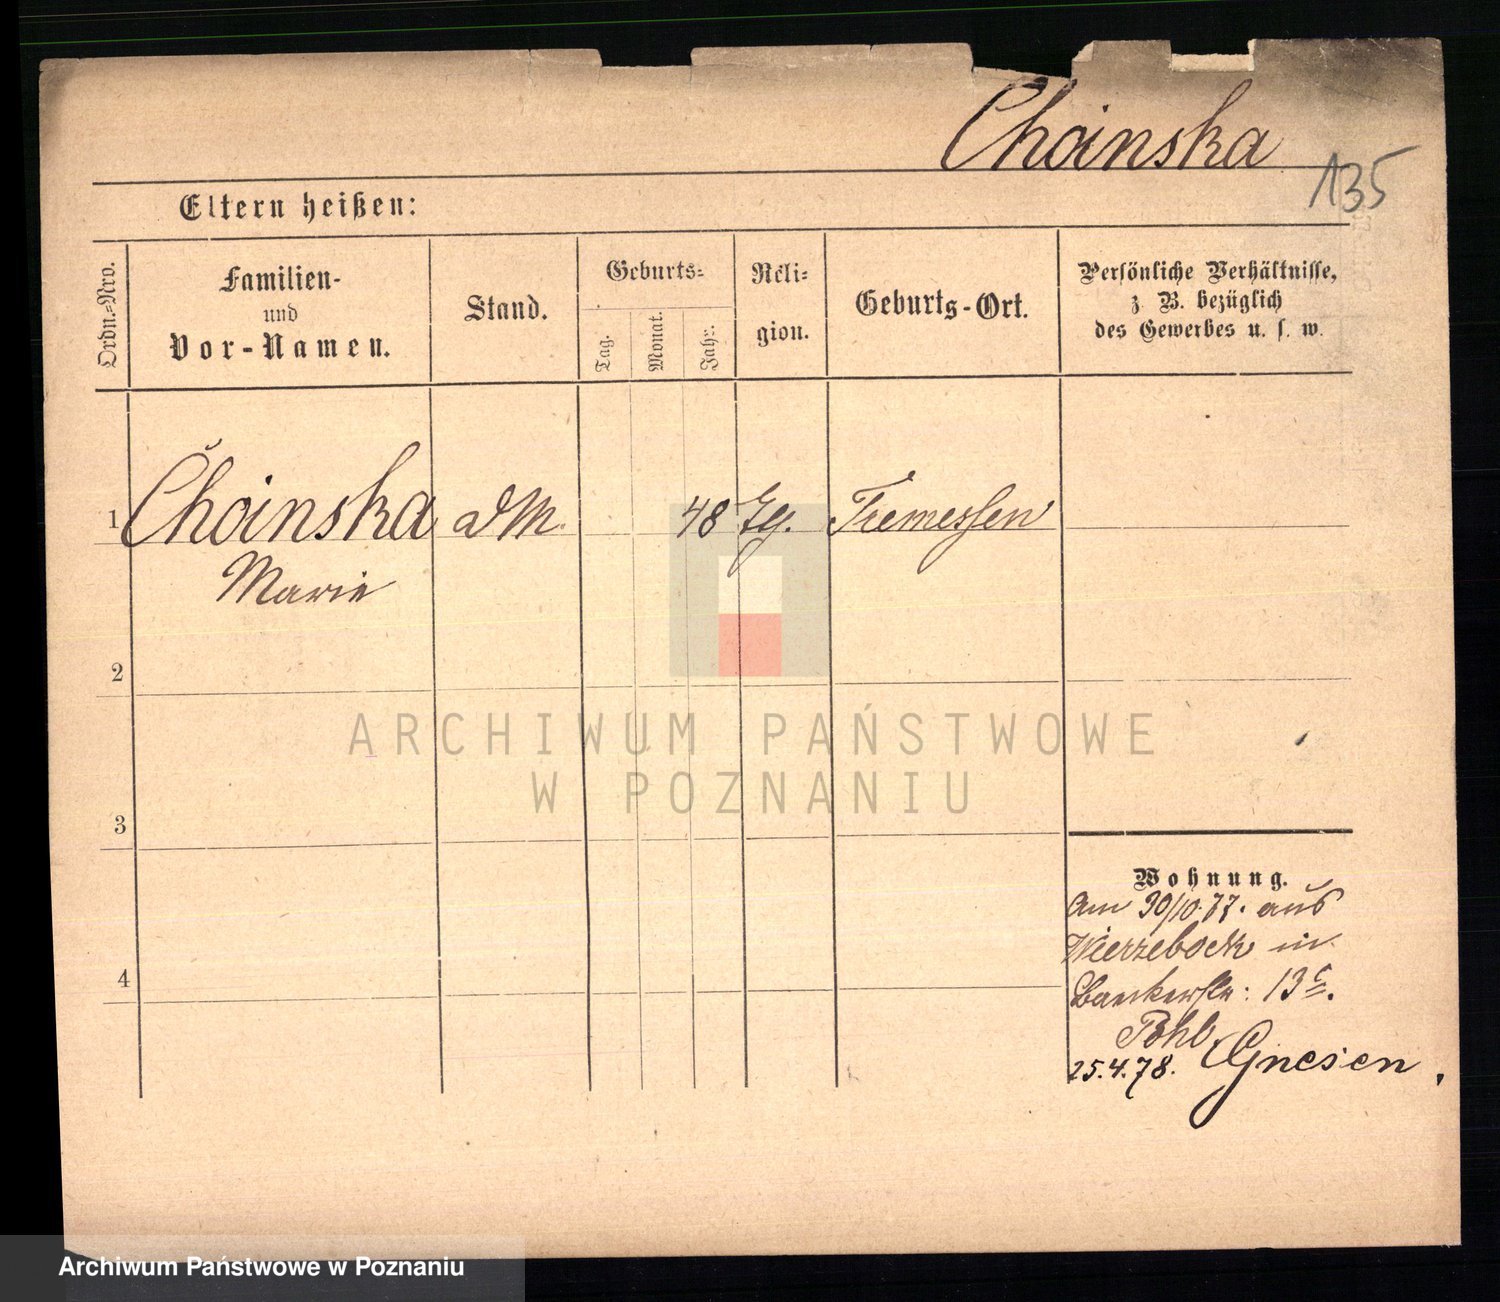 Choinska
135
Eltern heißen:
Ordn.-Nro.
Familien-
und
Vor-Namen.
Stand.
Geburts-
Tag.
Monat.
Jahr.
Reli-
gion.
Geburts-Ort.
Persönliche Verhältnisse,
z. B. bezüglich
des Gewerbes u. s. w.
1 Choinska 48 Tremessen
Marie
2
3
4
ARCHIWUM PAŃSTWOWE
W POZNANIU
Wohnung.
Am 30/10.77. aus
Wierzebock in
Baeckerstr: 13c.
Pohl
25.4.78. Gnesen.
Archiwum Państwowe w Poznaniu